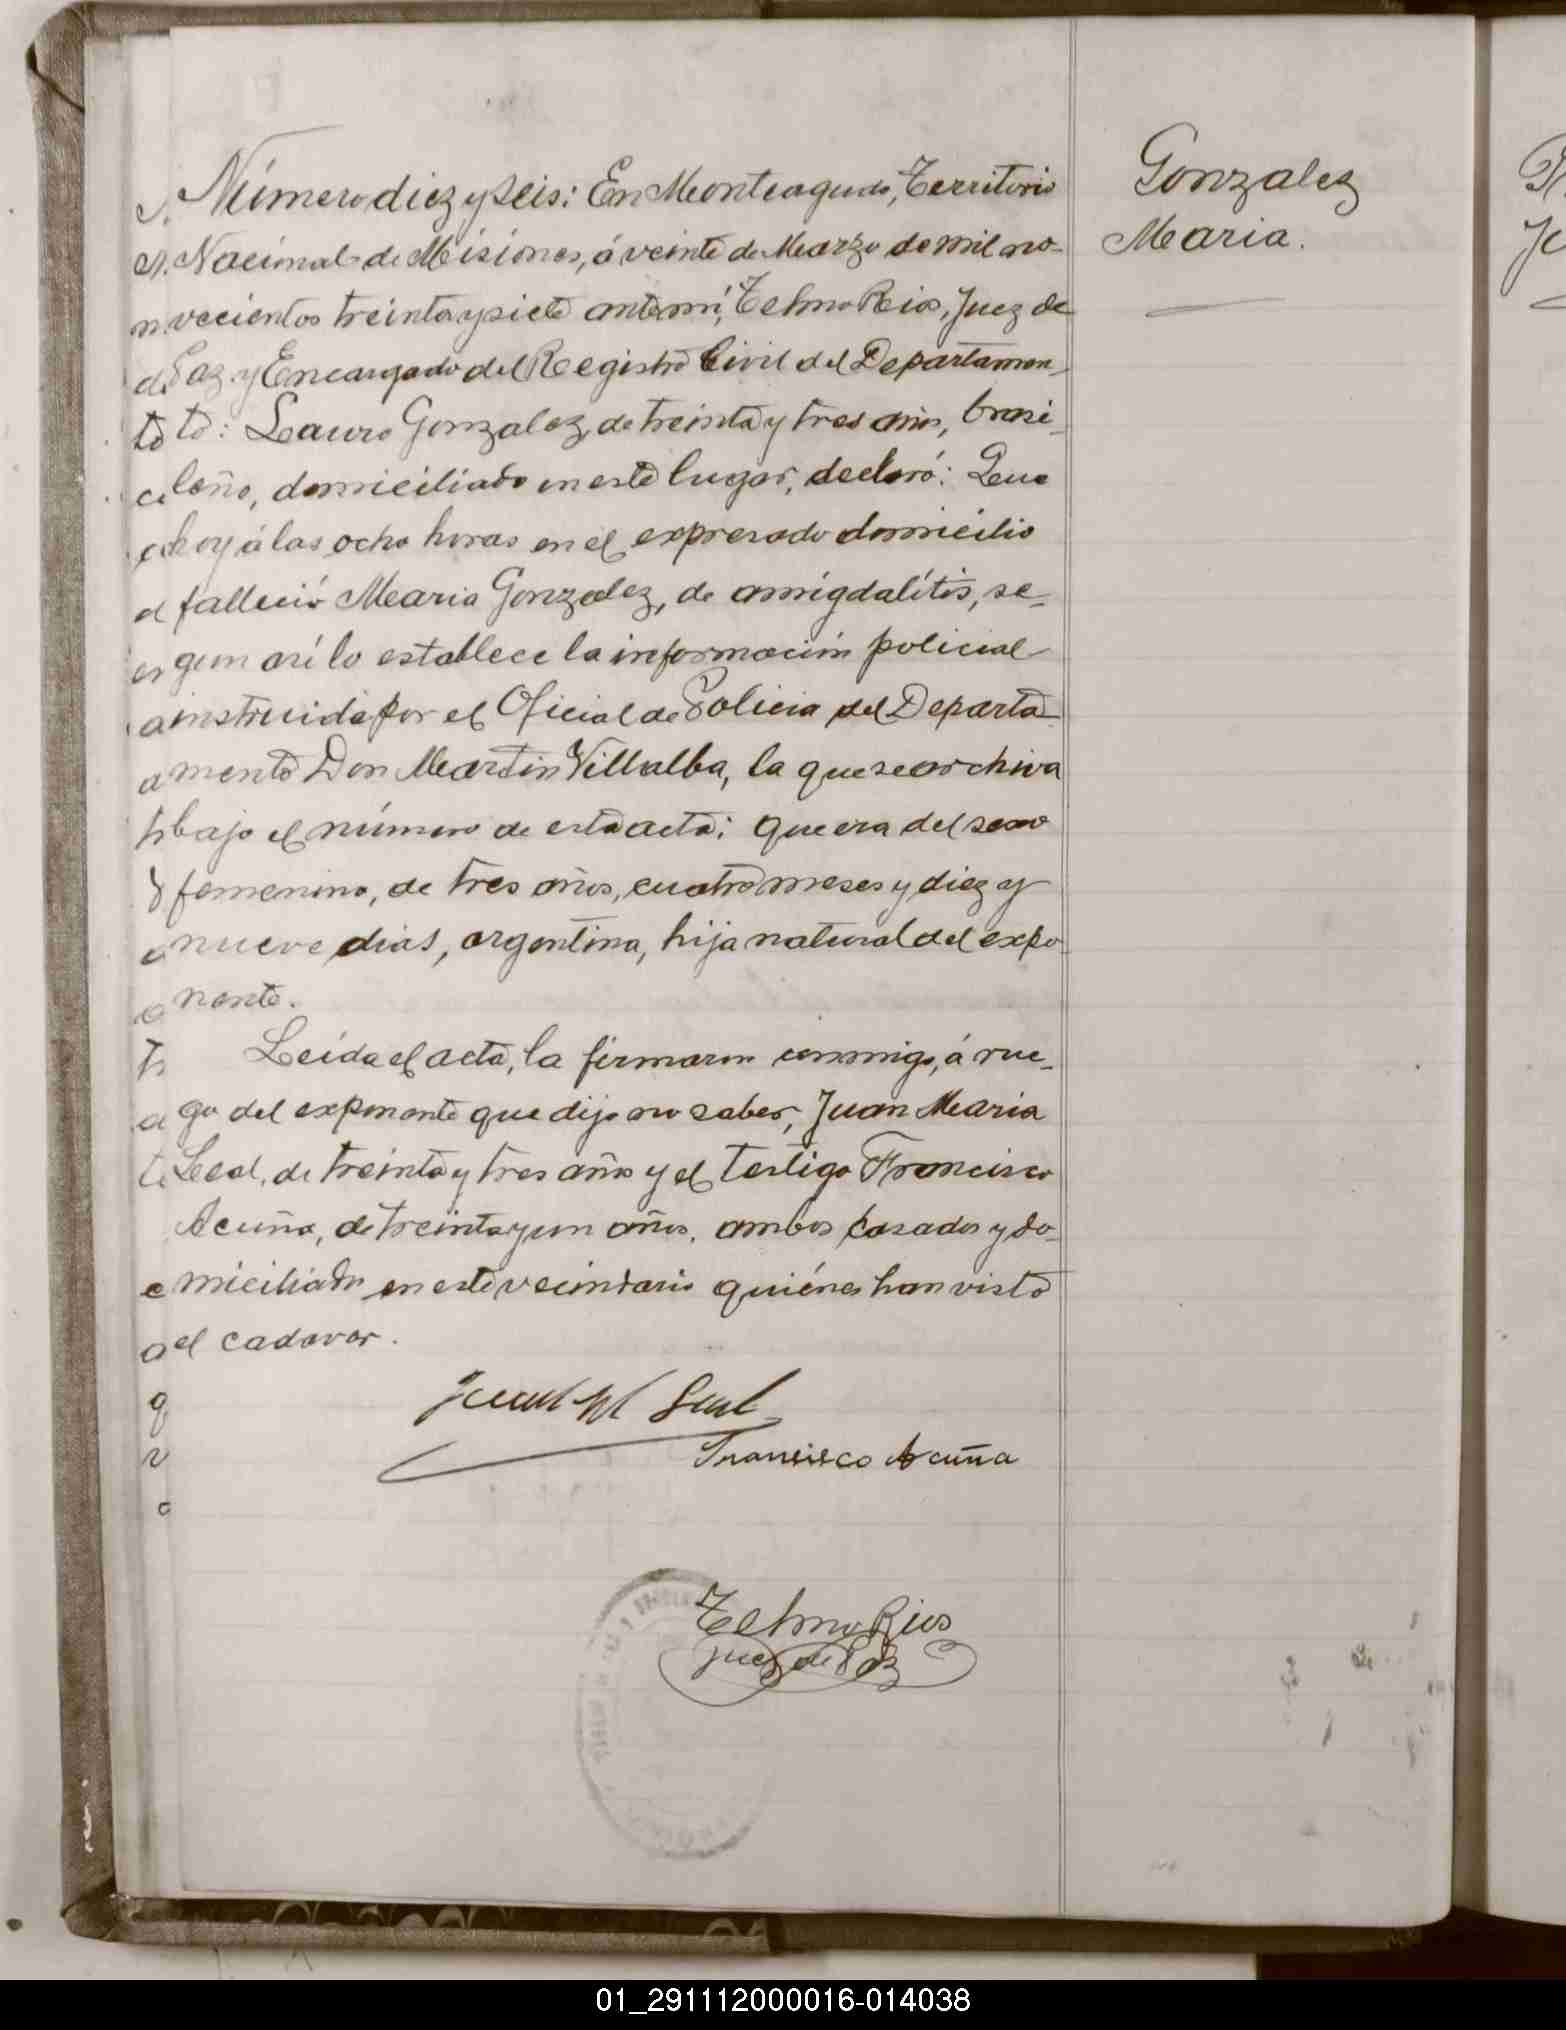 Número diez y seis: En Monteagudo, Territorio
Nacional de Misiones, á veinte de Marzo de mil no-
vecientos treinta y siete ante mí, Telmo Rios, Juez de
Paz y Encargado del Registro Civil del Departamen-
to: Lauro Gonzalez, de treinta y tres años, brasi-
leño, domiciliado en este lugar, declaró: Que
hoy á las ocho horas en el expresado domicilio
falleció Maria Gonzalez, de amígdalítis, se-
gun así lo establece la información policial
instruida por el Oficial de Policia del Departa-
mento Don Martin Villalba, la que se archiva
bajo el número de esta acta: que era del sexo
femenino, de tres años, cuatro meses y diez y
nueve dias, argentina, hija natural del expo-
nente.
Leída el acta, la firmaron conmigo, á rue-
go del exponente que dijo no saber, Juan Maria
Leal, de treinta y tres años y el testigo Francisco
Acuña, de treinta y un años, ambos casados y do-
miciliados en este vecindario quiénes han visto
el cadaver.
Juan M Leal
Francisco Acuña
Telmo Rios
Juez de Paz
Gonzalez
Maria.
01_291112000016-014038